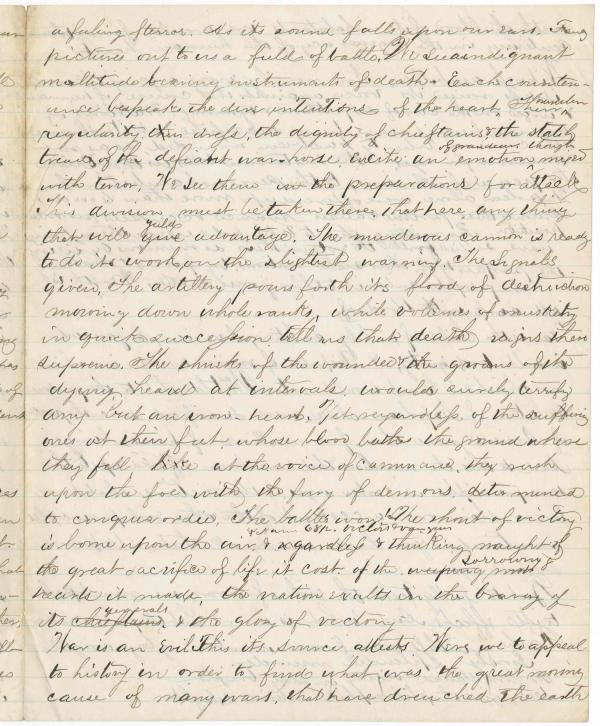 a feeling of terror. As its sound falls upon our ears. Fancy
pictures out to us a field of battle, We see an indignant
multitude bearing instruments of death. Each counten-
ance bespeaks the dire intentions of the heart. Their
regularity, their dress, the dignity of chieftains & the stately
of grandeur though
tread of the defiant war horse, excite an emotion
with terror, We see them in the preparations for attack
This division must be taken there. That here, any thing
yield
that will give advantage. The murderous cannon is ready
to do its work on the slightest warning. The signal is
given, The artillery pours forth its flood of destruction
mowing down whole ranks, while volumes of musketry
in quick succession tell us that death reigns there
supreme. The shrieks of the wounded & the groans of its
dying heard at intervals would surely terrify
any but an iron heart. Yet regardless of the suffering
ones at their feet whose blood bathe the ground where
they fell like at the voice of command, they rush
upon the foe with the fury of demons, determined
to conquer or die, The battle won! The shout of victory
is borne upon the air & regardless & thinking naught of
the great sacrifice of life it cost. of the weeping
sorrowing
hearts it made, the nation exults in the bravery of
generals
its chieftains, & the glory of victory
War is an Evil. This its source attests. Were we to appeal
to history in order to find what was the great moving
cause of many wars, that have drenched the earth